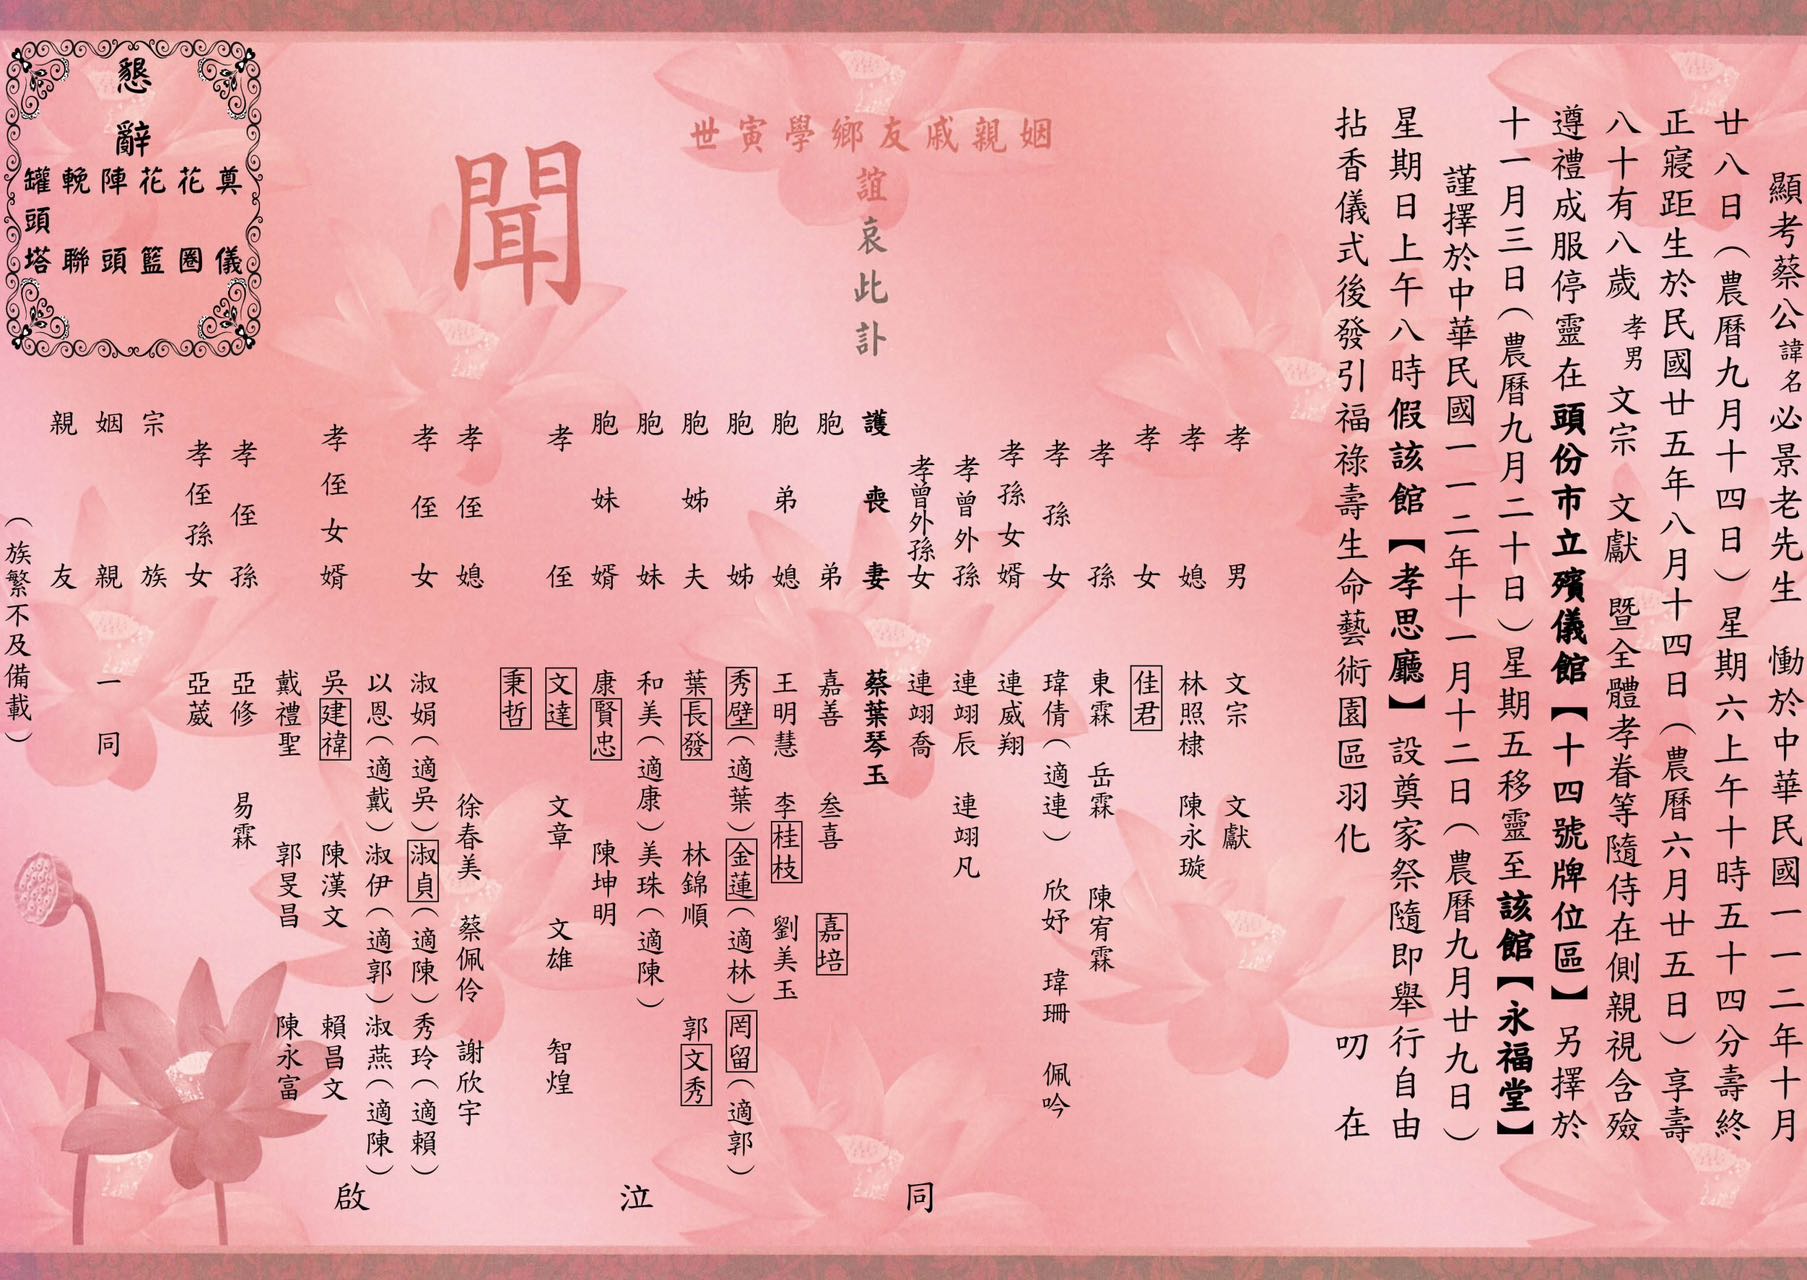 顯考蔡公諱名必景老先生 慟於中華民國一一二年十月
廿八日（農曆九月十四日）星期六上午十時五十四分壽終
正寢距生於民國廿五年八月十四日（農曆六月廿五日）享壽
八十有八歲 孝男 文宗 文獻 暨全體孝眷等隨侍在側親視含殮
遵禮成服停靈在頭份市立殯儀館【十四號牌位區】另擇於
十一月三日（農曆九月二十日）星期五移靈至該館【永福堂】
謹擇於中華民國一一二年十一月十二日（農曆九月廿九日）
星期日上午八時假該館【孝思廳】設奠家祭隨即舉行自由
拈香儀式後發引福祿壽生命藝術園區羽化 叨在
姻親戚友鄉學寅世
誼哀此訃
聞
孝男 文宗 文獻
孝媳 林照棣 陳永璇
孝女 佳君
孝孫 東霖 岳霖 陳宥霖
孝孫女 瑋倩（適連） 欣妤 瑋珊 佩吟
孝孫女婿 連威翔
孝曾外孫 連翊辰 連翊凡
孝曾外孫女 連翊喬
護喪妻 蔡葉琴玉
胞弟 嘉善 叁喜 嘉培
胞弟媳 王明慧 李桂枝 劉美玉
胞姊 秀壁（適葉）金蓮（適林）罔留（適郭）
胞姊夫 葉長發 林錦順 郭文秀
胞妹 和美（適康）美珠（適陳）
胞妹婿 康賢忠 陳坤明
孝侄 文達 文章 文雄 智煌
秉哲
孝侄媳 徐春美 蔡佩伶 謝欣宇
孝侄女 淑娟（適吳）淑貞（適陳）秀玲（適賴）
以恩（適戴）淑伊（適郭）淑燕（適陳）
孝侄女婿 吳建禕 陳漢文 賴昌文
戴禮聖 郭旻昌 陳永富
孝侄孫 亞修 易霖
孝侄孫女 亞葳
宗族
姻親 一同
親友
（族繁不及備載）
同泣啟
懇辭
奠儀
花圈
花籃
陣頭
輓聯
罐頭塔